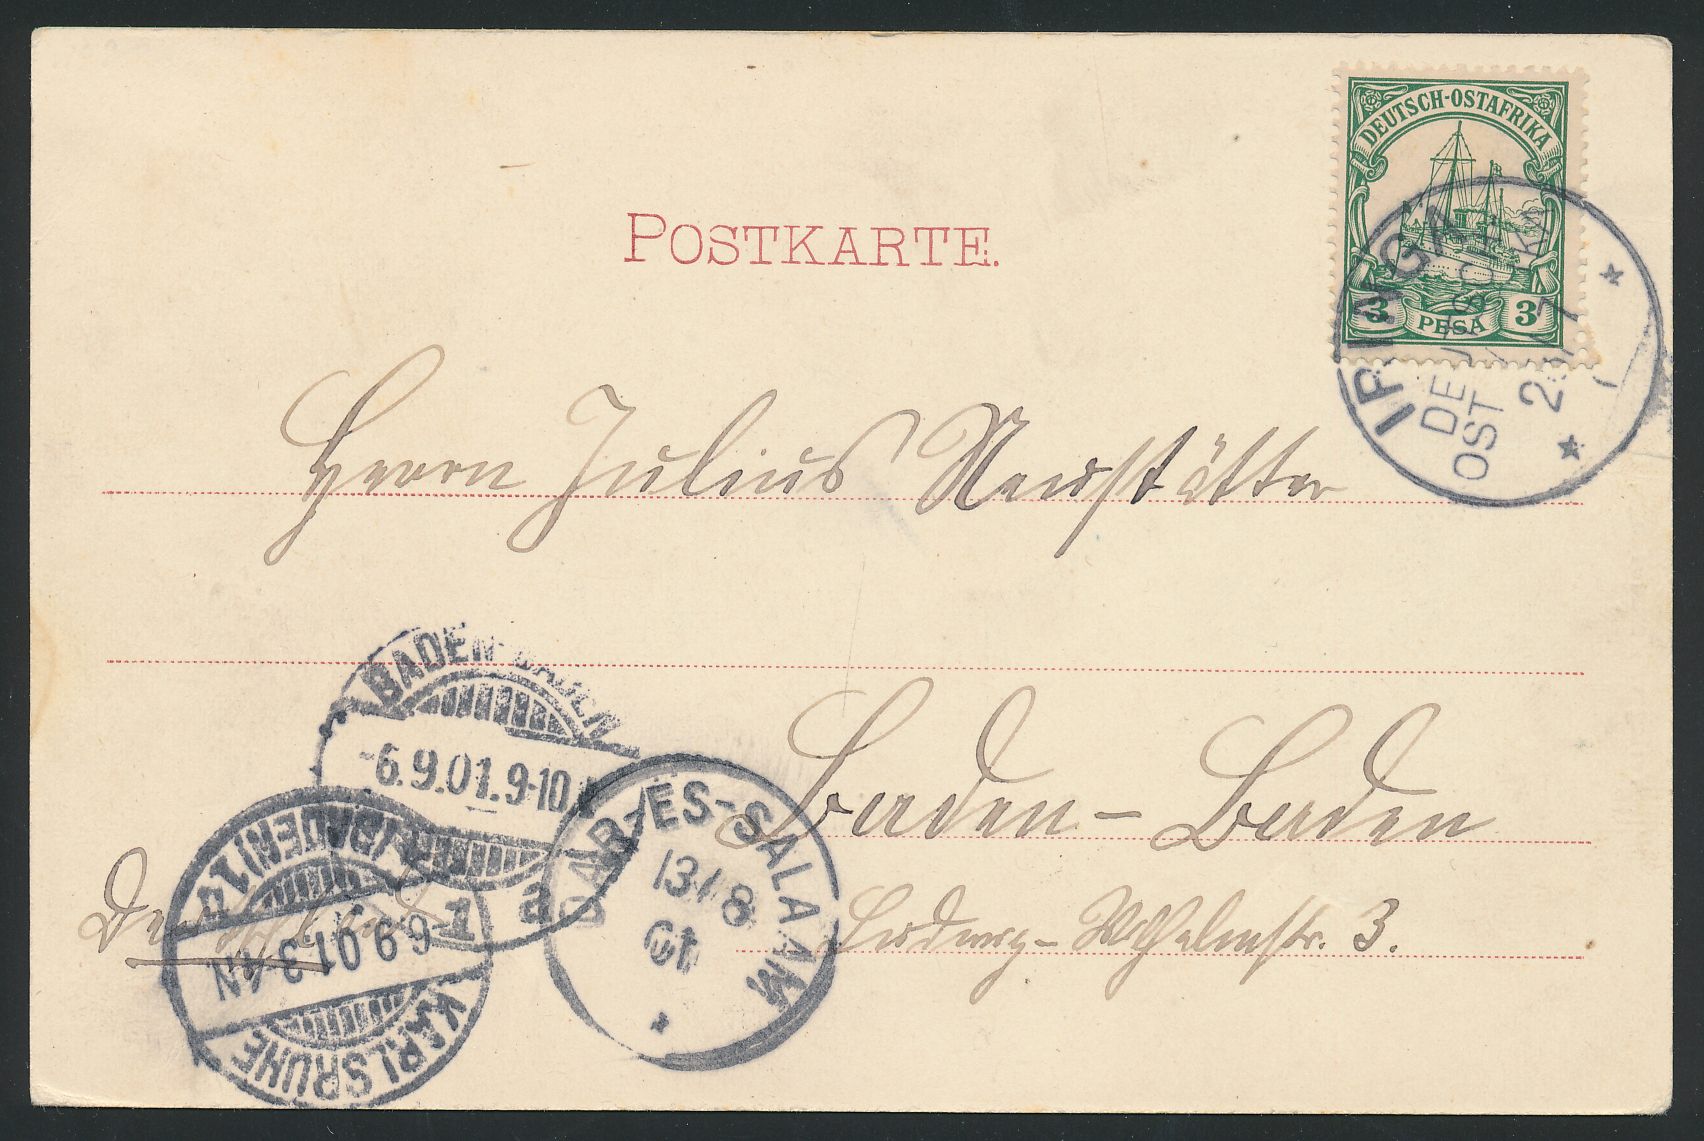 DEUTSCH-OSTAFRIKA
3 PESA 3
IRINGA
DEUTSCH
OST AFRIKA
POSTKARTE.
Herrn Julius Neustätter
BADEN-BADEN
-6.9.01.9-10
1 a
DAR-ES-SALAAM
13/8
01
Baden-Baden
KARLSRUHE (BADEN) 1
6.9.01.3-4N
Deutschland
Ludwig-Wilhelmstr. 3.